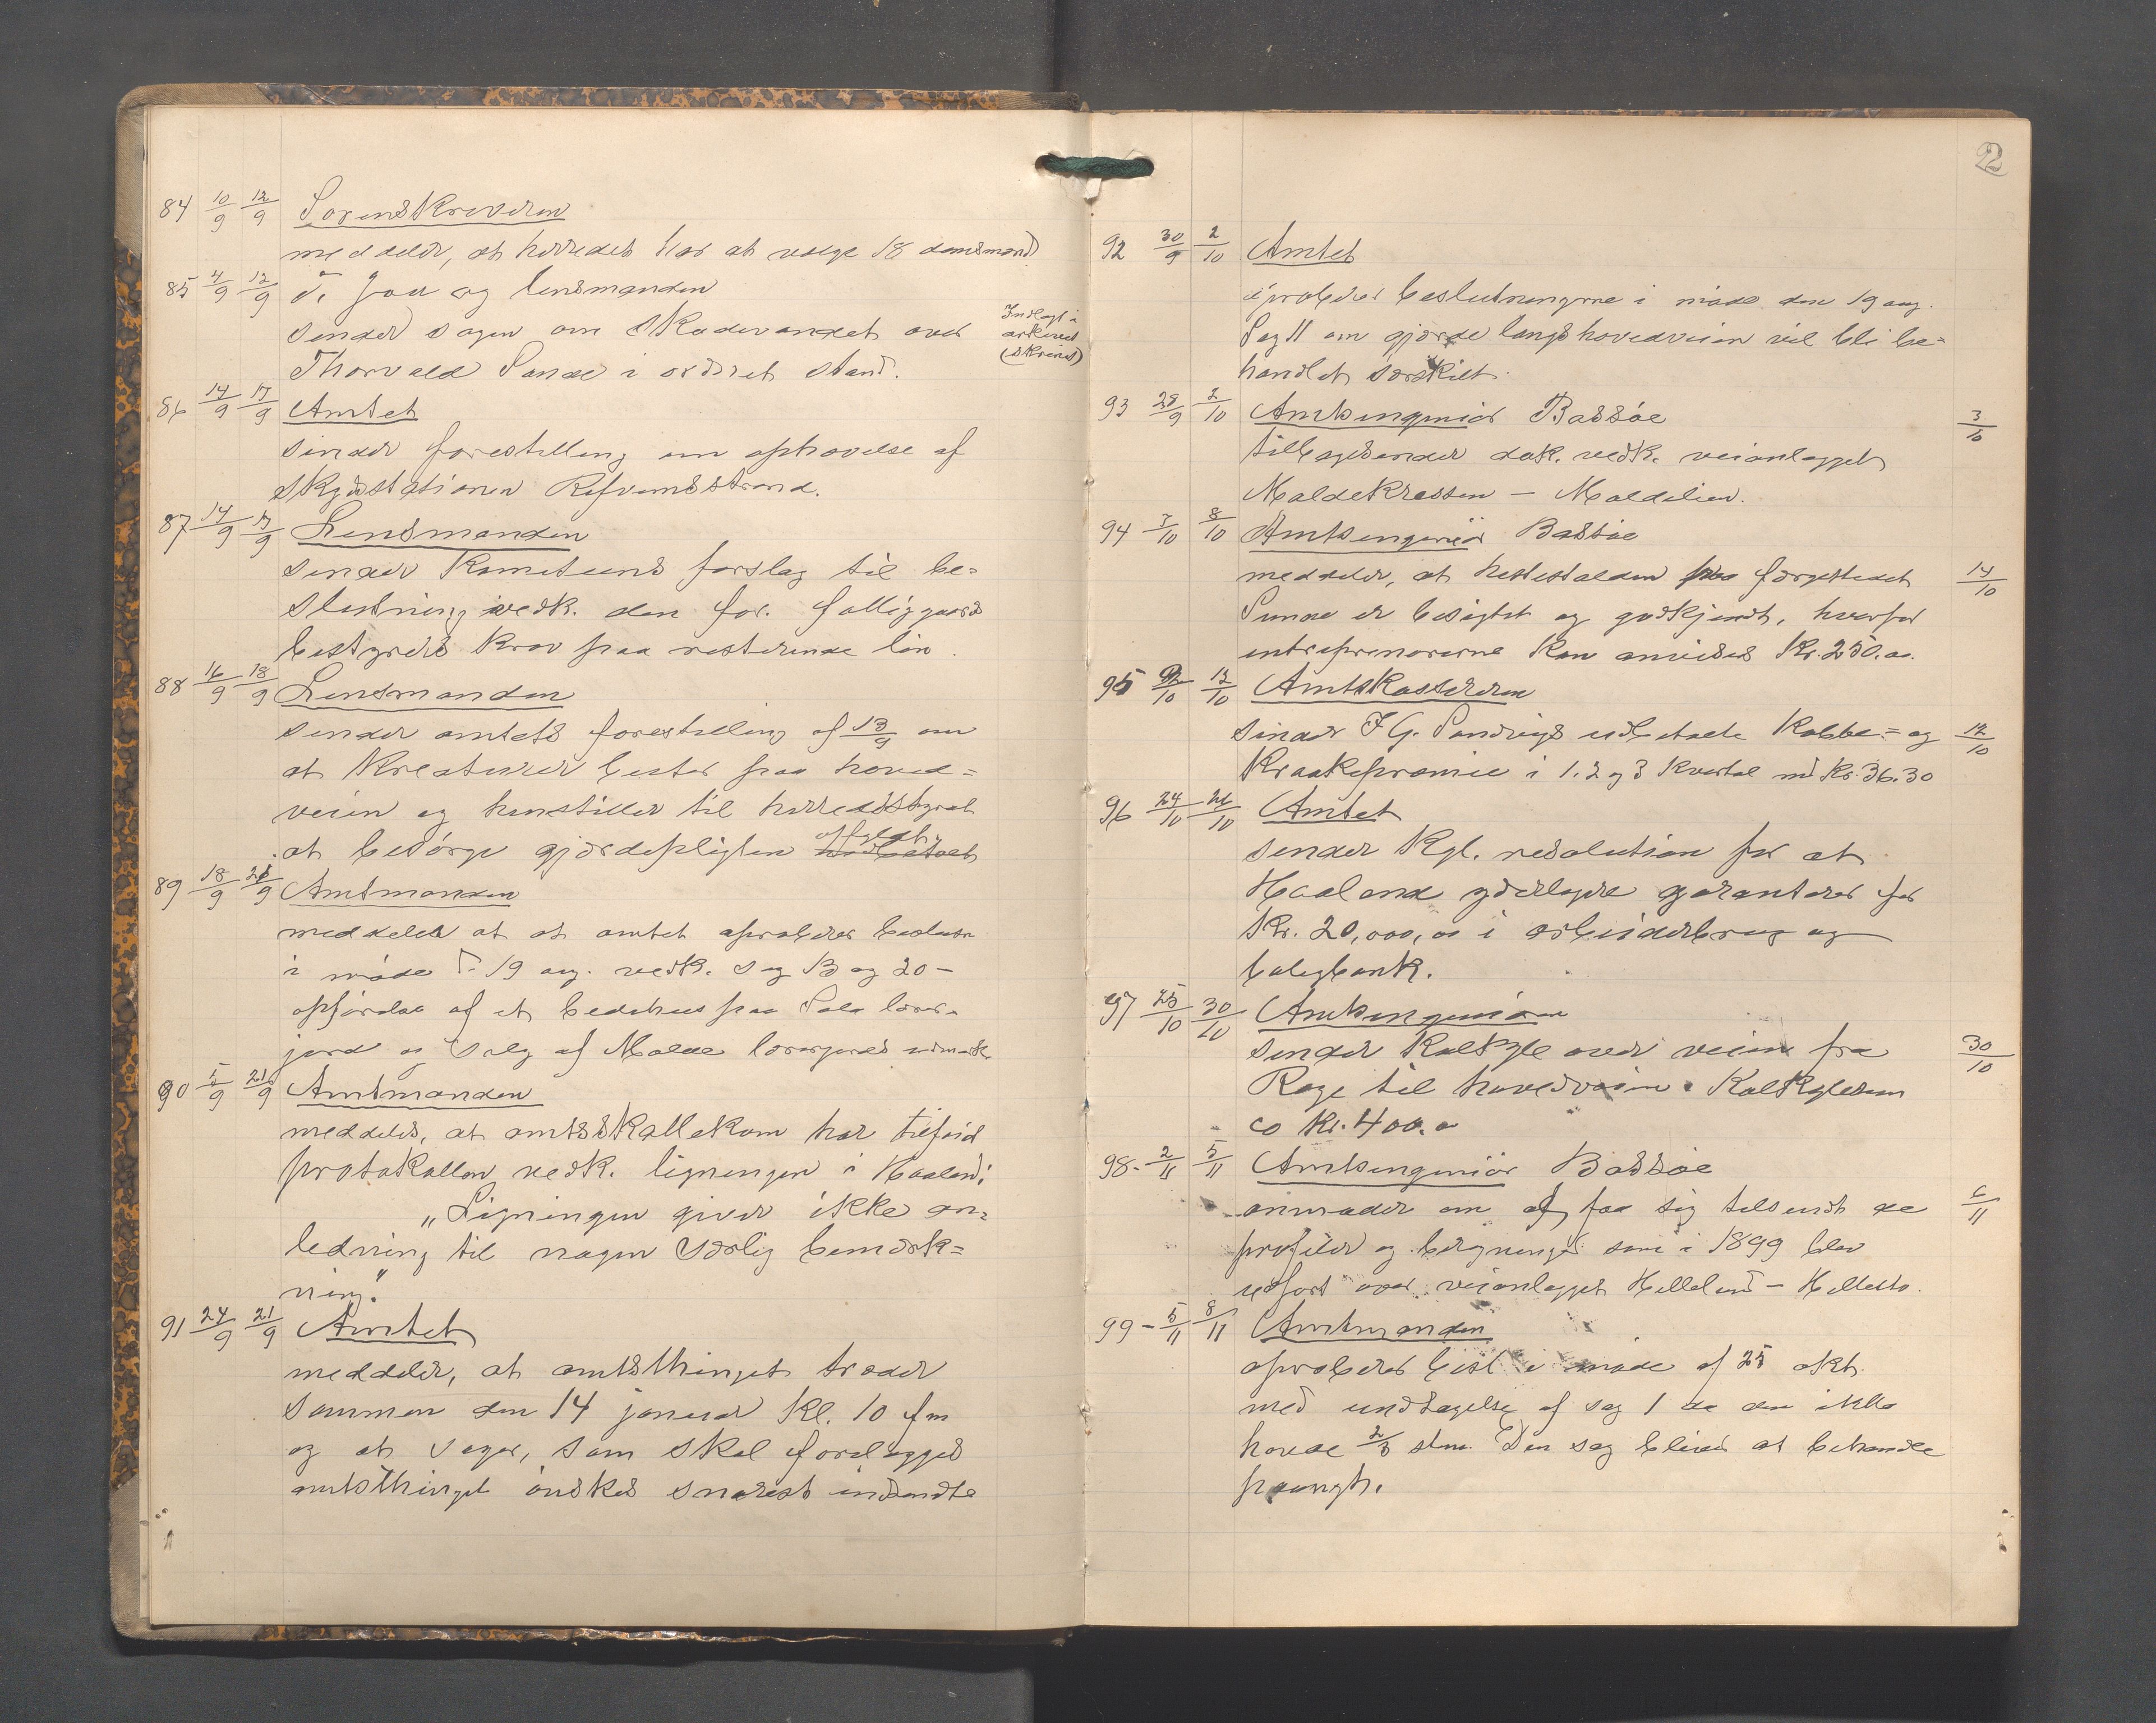 84 10/9 12/9 Sorenskriveren
meddeler, at herredet har at vælge 18 domsmænd
85 4/9 12/9 T. Joa og lensmanden
sender sagen om skadevandet over
Thorvald Sande i ordnet stand.
Indlagt i
arkivet
(skrinet)
86 14/9 17/9 Amtet
sender forestilling om ophævelse af
skydsstationen Refsnæsstrand.
87 14/9 17/9 Lensmanden
sender komiteens forslag til be=
slutning vedk. den for. fattiggaards
bestyrers krav paa resterende løn.
88 16/9 18/9 Lensmanden
sender amtets forestilling af 13/9 om
at kreaturer beiter paa hoved=
veien og henstiller til herredsstyret
at besørge gjerdepligten opfyldt.
89 18/9 21/9 Amtmanden
meddeler at at amtet aproberer beslutn
i møde d. 19 aug. vedk. sag 13 og 20 –
opførelse af et bedehus paa Sola lærer-
jord og salg af Malde lærerjords udmark.
90 5/9 21/9 Amtmanden
meddeler, at amtsskattekom har tilføid
protokollen vedk. ligningen i Haaland:
„Ligningen giver ikke an=
ledning til nogen særlig bemærk=
ning."
91 24/9 21/9 Amtet
meddeler, at amtsthinget træder
sammen den 14 januar kl. 10 fm
og at sager, som skal forelægges
amtsthinget ønskes snarest indsendte
2
92 30/9 2/10 Amtet
aproberer beslutningerne i møde den 19 aug.
Sag 11 om gjærde langs hovedveien vil bli be=
handlet særskilt.
93 28/9 2/10 Amtsingeniør Bassøe 3/10
tilbagesender dok. vedk. veianlægget
Maldekrossen – Maldelien.
94 7/10 8/10 Amtsingeniør Bassøe
meddeler, at hestestalden paa færgestedet 14/10
Sunde er besigtet og godkjendt, hvorfor
entreprenørerne kan anvises kr. 250.00.
95 12/10 Amtskassereren
sender J G. Sandvigs udbetalte kobbe= og 12/10
kraakepræmie i 1. 2 og 3 kvartal med kr. 36.30
96 24/10 26/10 Amtet
sender kgl. resolution for at
Haaland yderligere garanterer for
kr. 20,000,00 i arbeiderbrug og
boligbank.
97 25/10 30/10 Amtsingeniøren
sender kalkyle over veien fra 30/10
Røge til hovedveien. Kalkylesum
co kr. 400.00
98 - 2/11 5/11 Amtsingeniør Bassøe
anmoder om at faa sig tilsendt de 6/11
profiler og beregninger som i 1899 blev
udført over veianlægget Helleland – Hellestø.
99 - 5/11 8/11 Amtmanden
aproberer besl i møde af 25 okt.
med undtagelse af sag 1 da den ikke
havde 2/3 stem. Den sag bliver at behandle
paanyt.